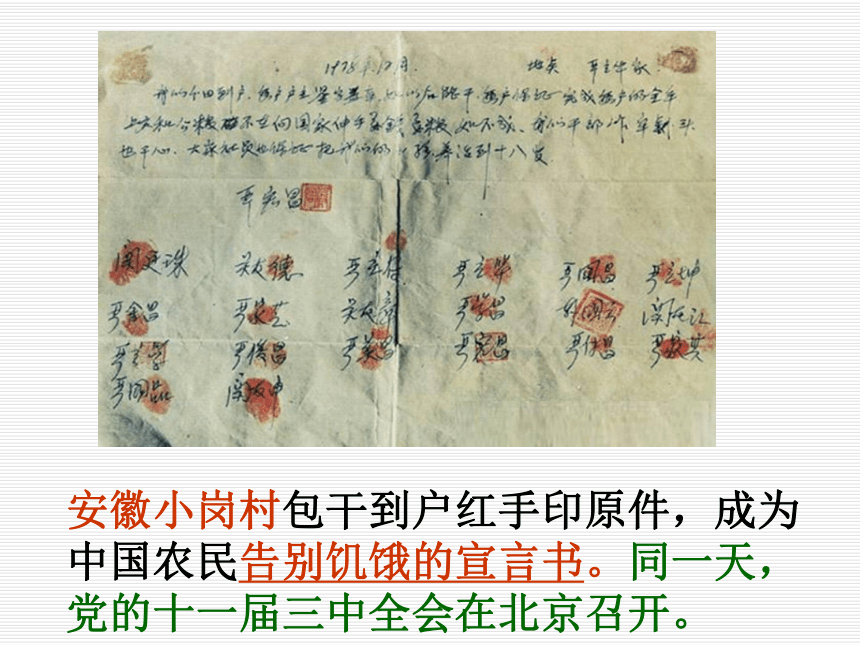 1978年12月. 地点 严立华家
我们分田到户,每户户主签字盖章,如以后能干,每户保证完成每户的全年
上交和公粮,不在向国家伸手要钱要粮,如不成,我们干部作牢刹头
也干心,大家社员也保证把我们的小孩养活到十八岁.
严宏昌
关廷珠 关友德 严立符 严立华 严国昌 严立坤
严金昌 严家芝 关友章 严学昌 韩国云 关友江
严立学 严俊昌 严美昌 严宏昌 严付昌 严家其
严国品 关友申
安徽小岗村包干到户红手印原件，成为
中国农民告别饥饿的宣言书。同一天，
党的十一届三中全会在北京召开。